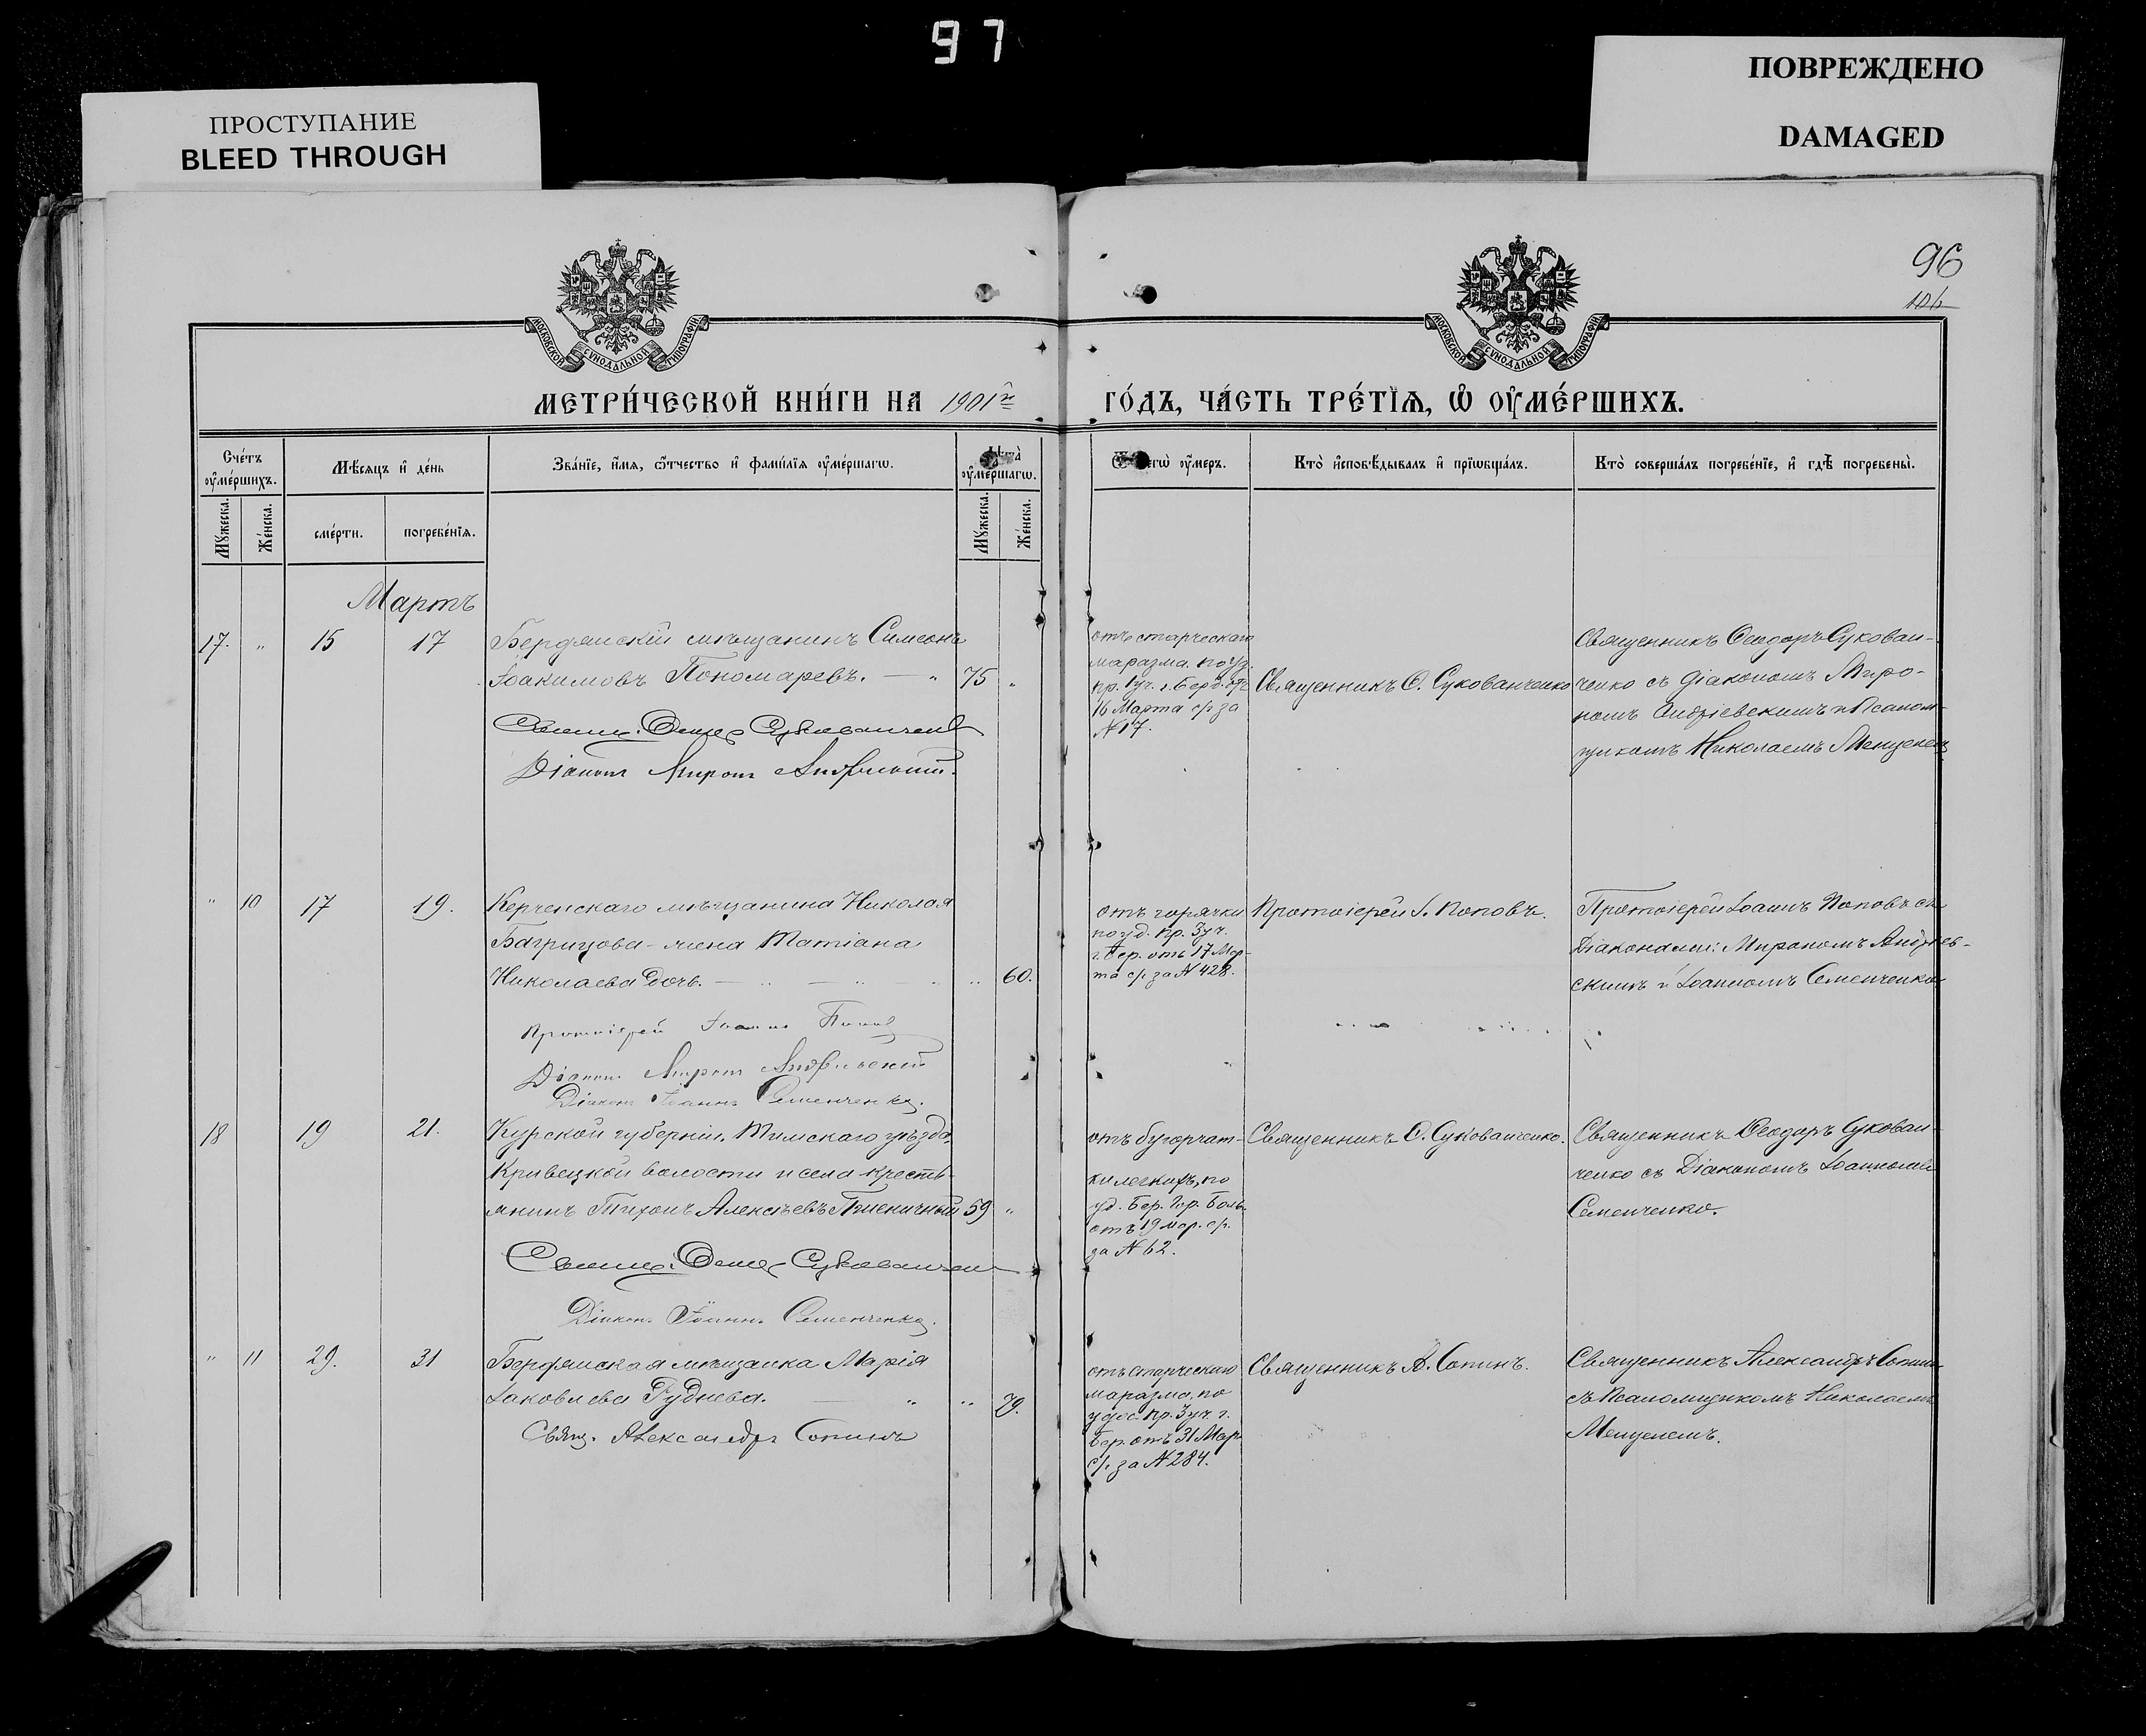 97
ПРОСТУПАНИЕ
BLEED THROUGH
ПОВРЕЖДЕНО
DAMAGED
96
МОСКОВСКОЙ СУНОДАЛЬНОЙ ТИПОГРАФІИ
МОСКОВСКОЙ СУНОДАЛЬНОЙ ТИПОГРАФІИ
МЕТРИ́ЧЕСКОЙ КНИ́ГИ НА 1901й ГО́ДЪ, ЧА́СТЬ ТРЕ́ТІѦ, Ѿ ОУ҆МЕ́РШИХЪ.
Сче́тъ оу҆ме́ршихъ.
Мѣ́сяцъ и҆ де́нь
Зва́нїе, и҆́мѧ, ѻ҆́тчество и҆ фами́лїѧ оу҆ме́ршагѡ.
Лѣ̀та̀ оу҆ме́ршагѡ.
Ѿ чегѡ̀ оу҆́меръ.
Кто̀ и҆сповѣ́дывалъ и҆ прїѡбща́лъ.
Кто̀ соверша́лъ погребе́нїе, и҆ гдѣ̀ погребены̀.
Мꙋ́жеска.
Же́нска.
сме́рти.
погребе́нїѧ.
Мꙋ́жеска.
Же́нска.
Мартъ
17. " 15 17
Бердянскій мѣщанинъ Симеонъ
Іоакимовъ Пономаревъ. — " 75 "
Священ. Ѳеодор Сукованченко
Діаконъ Миронъ Андріевскій.
отъ старческаго
маразма. по уд.
пр. 1 уч. г. Берд. отъ
16 Марта с/г за
№ 17.
Священникъ Ѳ. Сукованченко
Священникъ Ѳеодоръ Сукован-
ченко съ діакономъ Миро-
номъ Андріевскимъ и Псалом-
щикомъ Николаемъ Менцелемъ
" 10 17 19.
Керченскаго мѣщанина Николая
Багрицова-жена Татіана
Николаева дочь. — " — " " " 60.
Протоіерей Іоаннъ Поповъ
Діаконъ Миронъ Андріевскій
Діаконъ Іоаннъ Семенченко.
отъ горячки
по уд. пр. 3 уч.
г. Бер. отъ 17 Мар-
та с/г за № 428.
Протоіерей І. Поповъ.
Протоіерей Іоаннъ Поповъ съ
Діаконами: Мирономъ Андріев-
скимъ и Іоанномъ Семенченко
18 19 21.
Курской губерніи, Тимскаго уѣзда,
Кривецкой волости и села кресть-
янинъ Тихонъ Алексѣевъ Пшеничный 59 "
Священ. Ѳеодор Сукованченко
Діаконъ Іоаннъ Семенченко.
отъ бугорчат-
ки легкихъ, по
уд. Бер. Гор. Боль.
отъ 19 мар. с/г.
за № 62.
Священникъ Ѳ. Сукованченко.
Священникъ Ѳеодоръ Сукован-
ченко съ Діакономъ Іоанномъ
Семенченко.
" 11 29. 31
Бердянская мѣщанка Марія
Іаковлева Руднева. — " " 79.
Свящ. Александръ Сопинъ
отъ старческаго
маразма, по
удос. пр. 3 уч. г.
Бер. отъ 31 Мар.
с/г. за № 284.
Священникъ А. Сопинъ.
Священникъ Александръ Сопинъ
съ Псаломщикомъ Николаемъ
Менцелемъ.